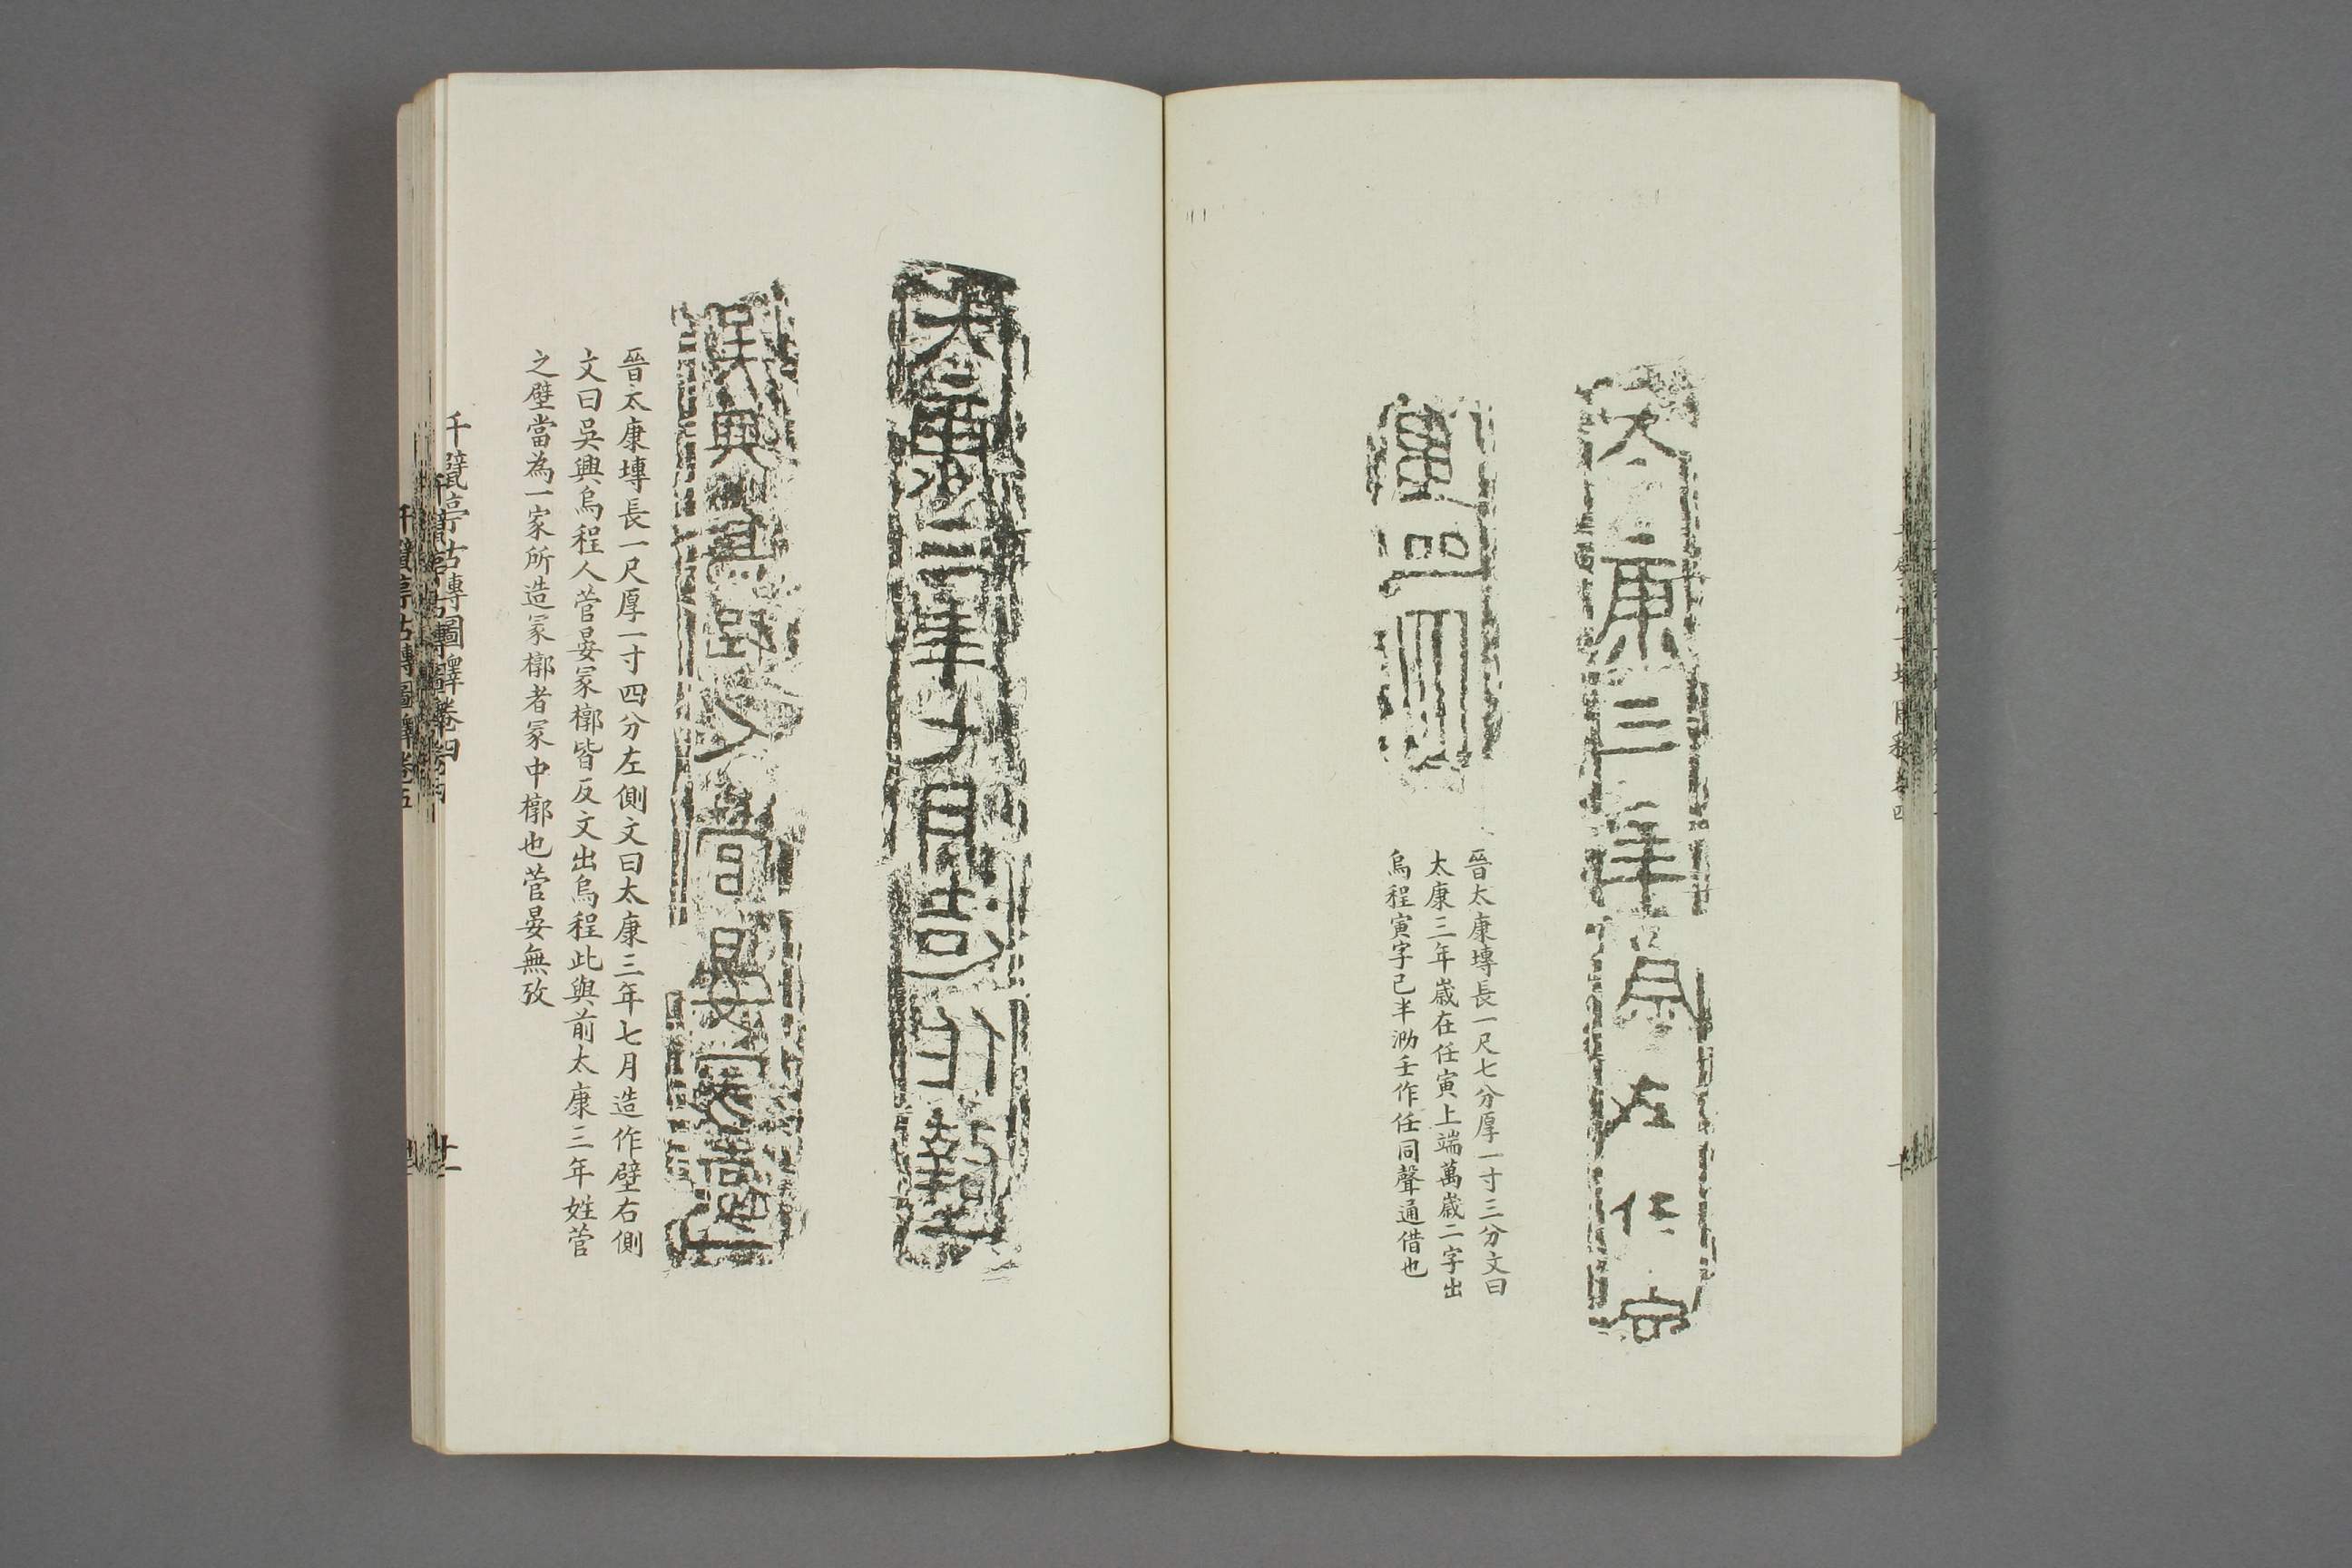 大康三年歲在任寅
萬歲
晉太康塼長一尺七分厚一寸三分文曰
太康三年嵗在任寅上端萬嵗二字出
烏程寅字已半泐壬作任同聲通借也
太康三年七月造作壁
吳興烏程人菅晏冢槨
晉太康塼長一尺厚一寸四分左側文曰太康三年七月造作壁右側
文曰吳興烏程人菅晏冢槨皆反文出烏程此與前太康三年姓菅
之壁當為一家所造冢槨者冢中槨也菅晏無攷
千甓亭古塼圖釋卷四
十一